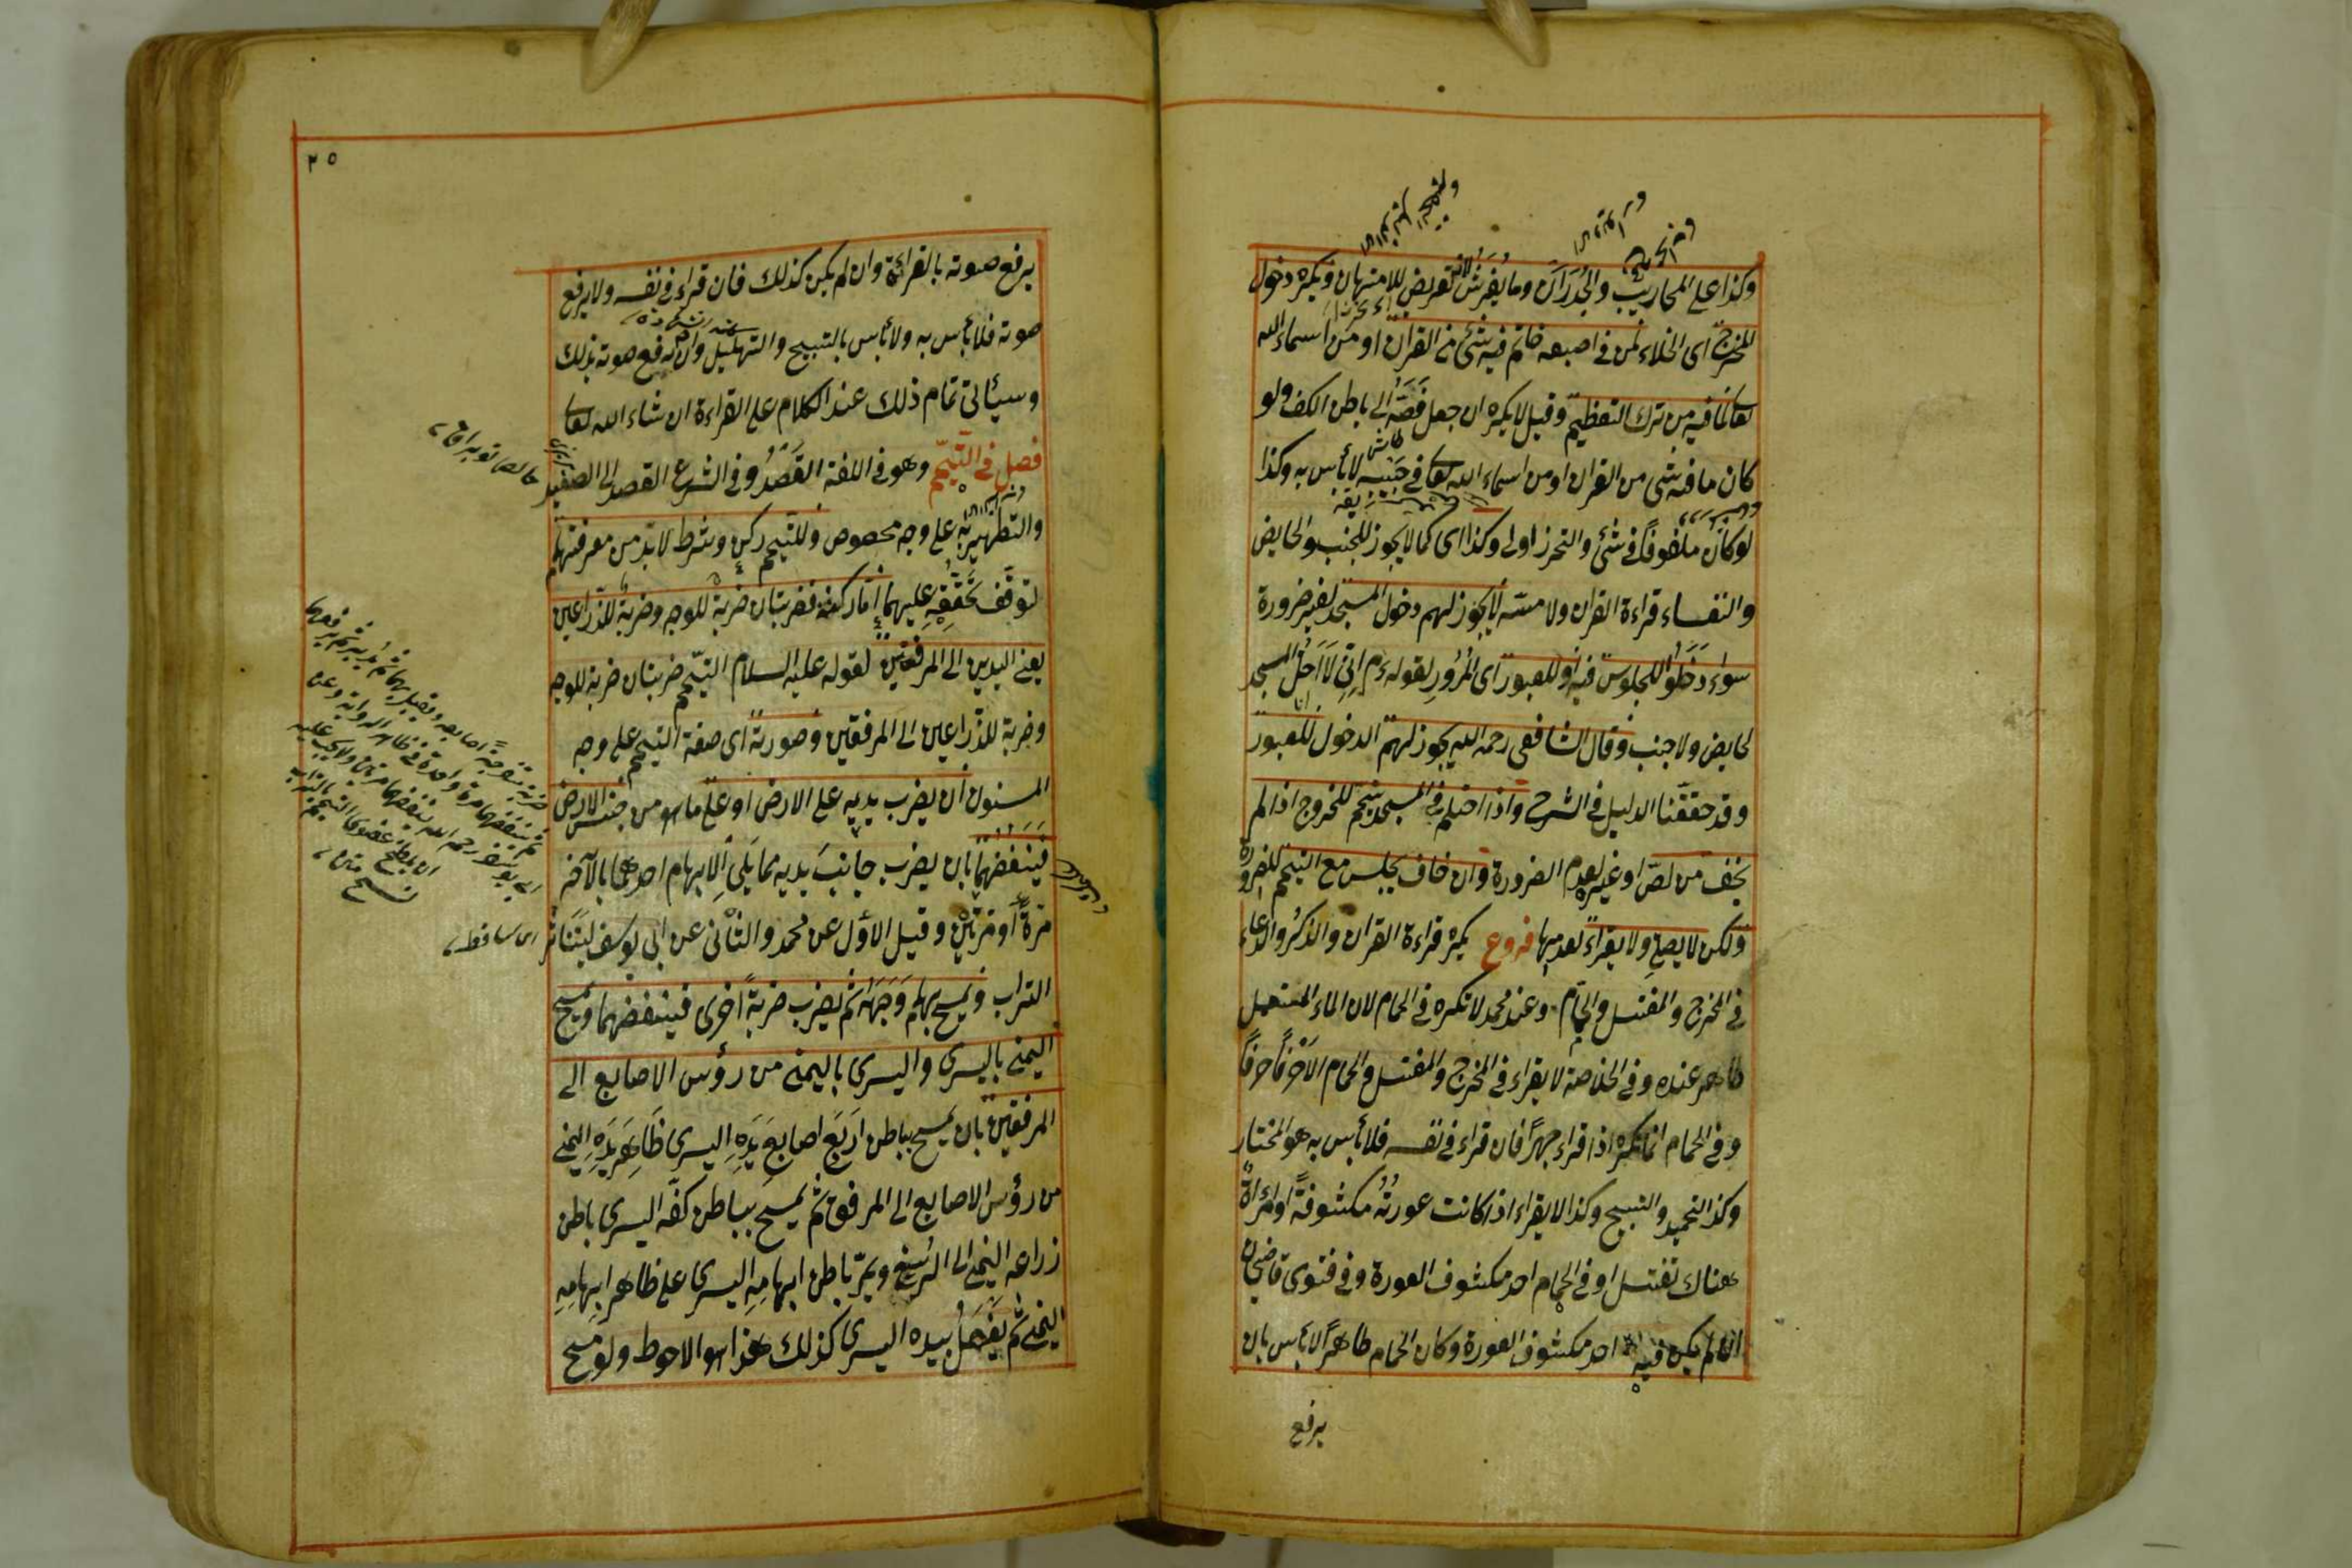 وكذا على المحاريب والجدران وما يفرش لانه تعريض للامتهان ويكره دخول
المخرج اى الخلاء لمن فى اصبعه خاتم فيه شئ من القران او من اسماء الله
تعالى لما فيه من ترك التعظيم وقيل لا يكره ان جعل فصّه الى باطن الكف ولو
كان ما فيه شى من القران او من اسماء الله تعالى فى جيبه لا بأس به وكذا
لو كان ملفوفا فى شئ والتحرز اولى وكذا اى كما لا يجوز للجنب والحايض
والنفساء قراءة القران ولا مسّه لا يجوز لهم دخول المسجد لغير ضرورة
سواء دخلوا للجلوس فيه او للعبور اى المرور لقوله ءم انى لا احلّ المسجد
لحايض ولا جنب وقال الشافعى رحمه الله يجوز لهم الدخول للعبور
وقد حققنا الدليل فى الشرح واذا احتلم فى المسجد تيمم للخروج اذا لم
يخف من لصّ او غيره لعدم الضرورة وان خاف يجلس مع التيمم للضرورة
ولكن لا يصلى ولا يقراء بعد بها فروع يكره قراءة القران والذكر والدعاء
فى المخرج والمغتسل والحمّام وعند محمد لا تكره فى الحمام لان الماء المستعمل
طاهر عنده وفى الخلاصة لا يقراء فى المخرج والمغتسل والحمام الا حرفًا حرفًا
وفى الحمام انما تكره اذا قراء جهرًا فان قراء فى نفسه فلا بأس به هو المختار
وكذا التحميد والتسبيح وكذا لا يقراء اذا كانت عورتُه مكشوفةً او امرأةً
هناك تغتسل او فى الحمام احد مكشوف العورة وفى فتوى قاضيخان
ان لم يكن فيه احد مكشوف العورة وكان الحمام طاهرًا لا بأس بان
يرفع
٢٥
يرفع صوته بالقرائة وان لم يكن كذلك فان قراء فى نفسه ولا يرفع
صوته فلا بأس به ولا بأس بالتسبيح والتهليل وان رفع صوته بذلك
وسيأتى تمام ذلك عند الكلام على القراءة ان شاء الله تعالى
فصل فى التيمّم وهو فى اللغة القصدُ وفى الشرع القصد الى الصعيد
والتطهير به على وجه مخصوص وللتيمم ركن وشرط لا بدّ من معرفتهما
لتوقّف تحقّقه عليهما أمّا ركنه فضربتان ضربة للوجه وضربة للذّراعين
يعنى اليدين الى المرفقين لقوله عليه السلام التيمّم ضربتان ضربة للوجه
وضربة للذّراعين الى المرفقين وصورته اى صفة التيمم على وجه
المسنون ان يضرب يديه على الارض او على ما هو من جنس الارض
فينفضهما بان يضرب جانب يديه مما يلى الابهام احدهما بالآخر
مرّةً او مرّتين وقيل الاوّل عن محمد والثانى عن ابى يوسف ليتناثر
التراب ويمسح بهما وجهه ثم يضرب ضربةً اخرى فينفضهما ويمسح
اليمنى باليسرى واليسرى باليمنى من رؤس الاصابع الى
المرفقين بان يمسح بباطن اربع اصابع يده اليسرى ظاهر يده اليمنى
من رؤس الاصابع الى المرفق ثم يمسح بباطن كفّه اليسرى باطن
زراعه اليمنى الى الرسغ ويمرّ باطن ابهامه اليسرى على ظاهر ابهامه
اليمنى ثم يفعل بيده اليسرى كذلك هذا هو الاحوط ولو مسح